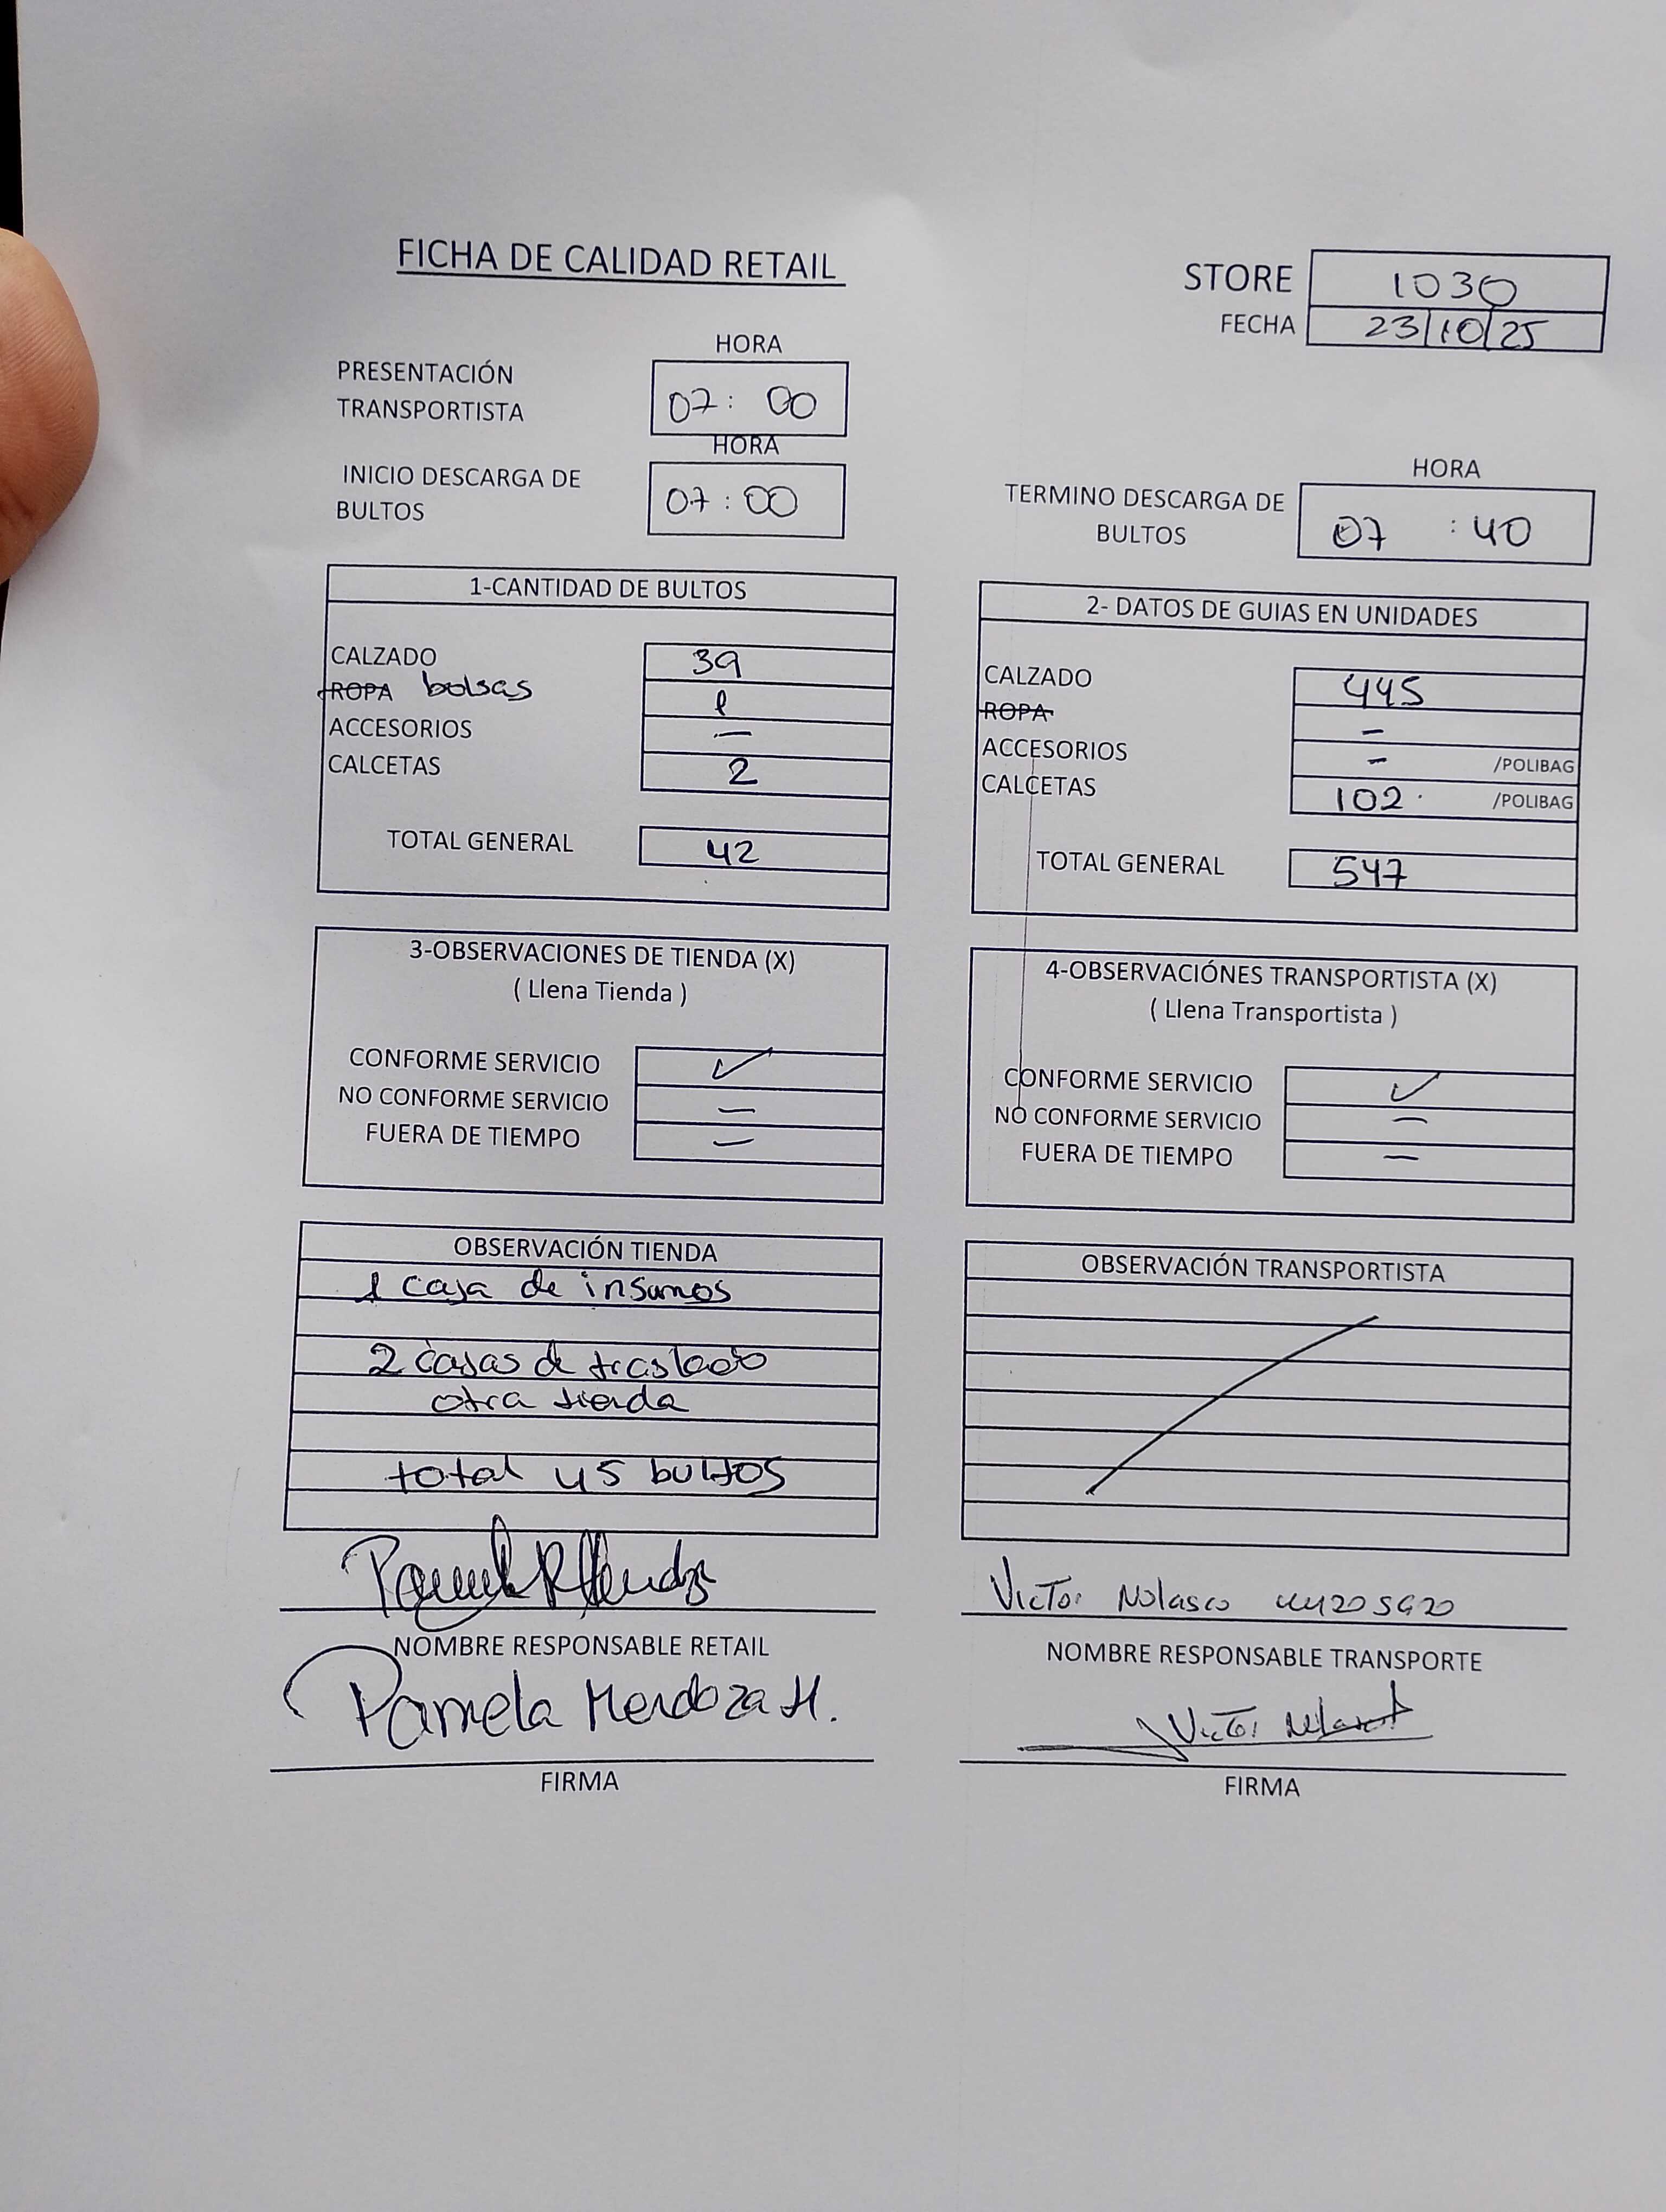 FICHA DE CALIDAD RETAIL
STORE 1030
FECHA 23/10/25
HORA
PRESENTACIÓN
TRANSPORTISTA 07: 00
HORA
INICIO DESCARGA DE
BULTOS 07:00
HORA
TERMINO DESCARGA DE
BULTOS 07 :40
1-CANTIDAD DE BULTOS
CALZADO 39
ROPA bolsas 1
ACCESORIOS —
CALCETAS 2
TOTAL GENERAL 42
2- DATOS DE GUIAS EN UNIDADES
CALZADO 445
ROPA –
ACCESORIOS – /POLIBAG
CALCETAS 102 /POLIBAG
TOTAL GENERAL 547
3-OBSERVACIONES DE TIENDA (X)
( Llena Tienda )
CONFORME SERVICIO ✓
NO CONFORME SERVICIO –
FUERA DE TIEMPO –
4-OBSERVACIÓNES TRANSPORTISTA (X)
( Llena Transportista )
CONFORME SERVICIO ✓
NO CONFORME SERVICIO –
FUERA DE TIEMPO –
OBSERVACIÓN TIENDA
1 caja de insumos
2 cajas de traslado
otra tienda
total 45 bultos
OBSERVACIÓN TRANSPORTISTA
Victor Nolasco
NOMBRE RESPONSABLE RETAIL
NOMBRE RESPONSABLE TRANSPORTE
Pamela Mendoza H.
Victor
FIRMA
FIRMA